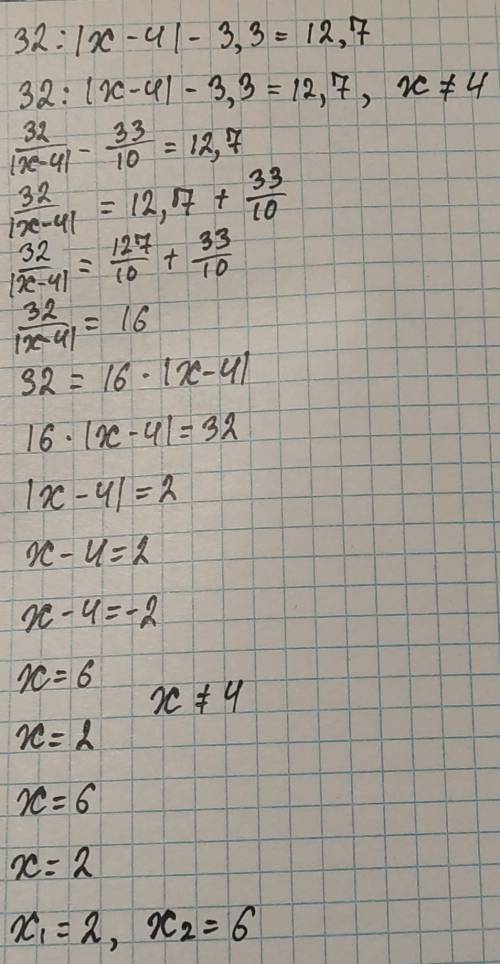 32 : |x - 4| - 3,3 = 12,7
32 : |x - 4| - 3,3 = 12,7, x ≠ 4
32/|x-4| - 33/10 = 12,7
32/|x-4| = 12,7 + 33/10
32/|x-4| = 127/10 + 33/10
32/|x-4| = 16
32 = 16 · |x-4|
16 · |x - 4| = 32
|x - 4| = 2
x - 4 = 2
x - 4 = -2
x = 6
x ≠ 4
x = 2
x = 6
x = 2
x₁ = 2, x₂ = 6